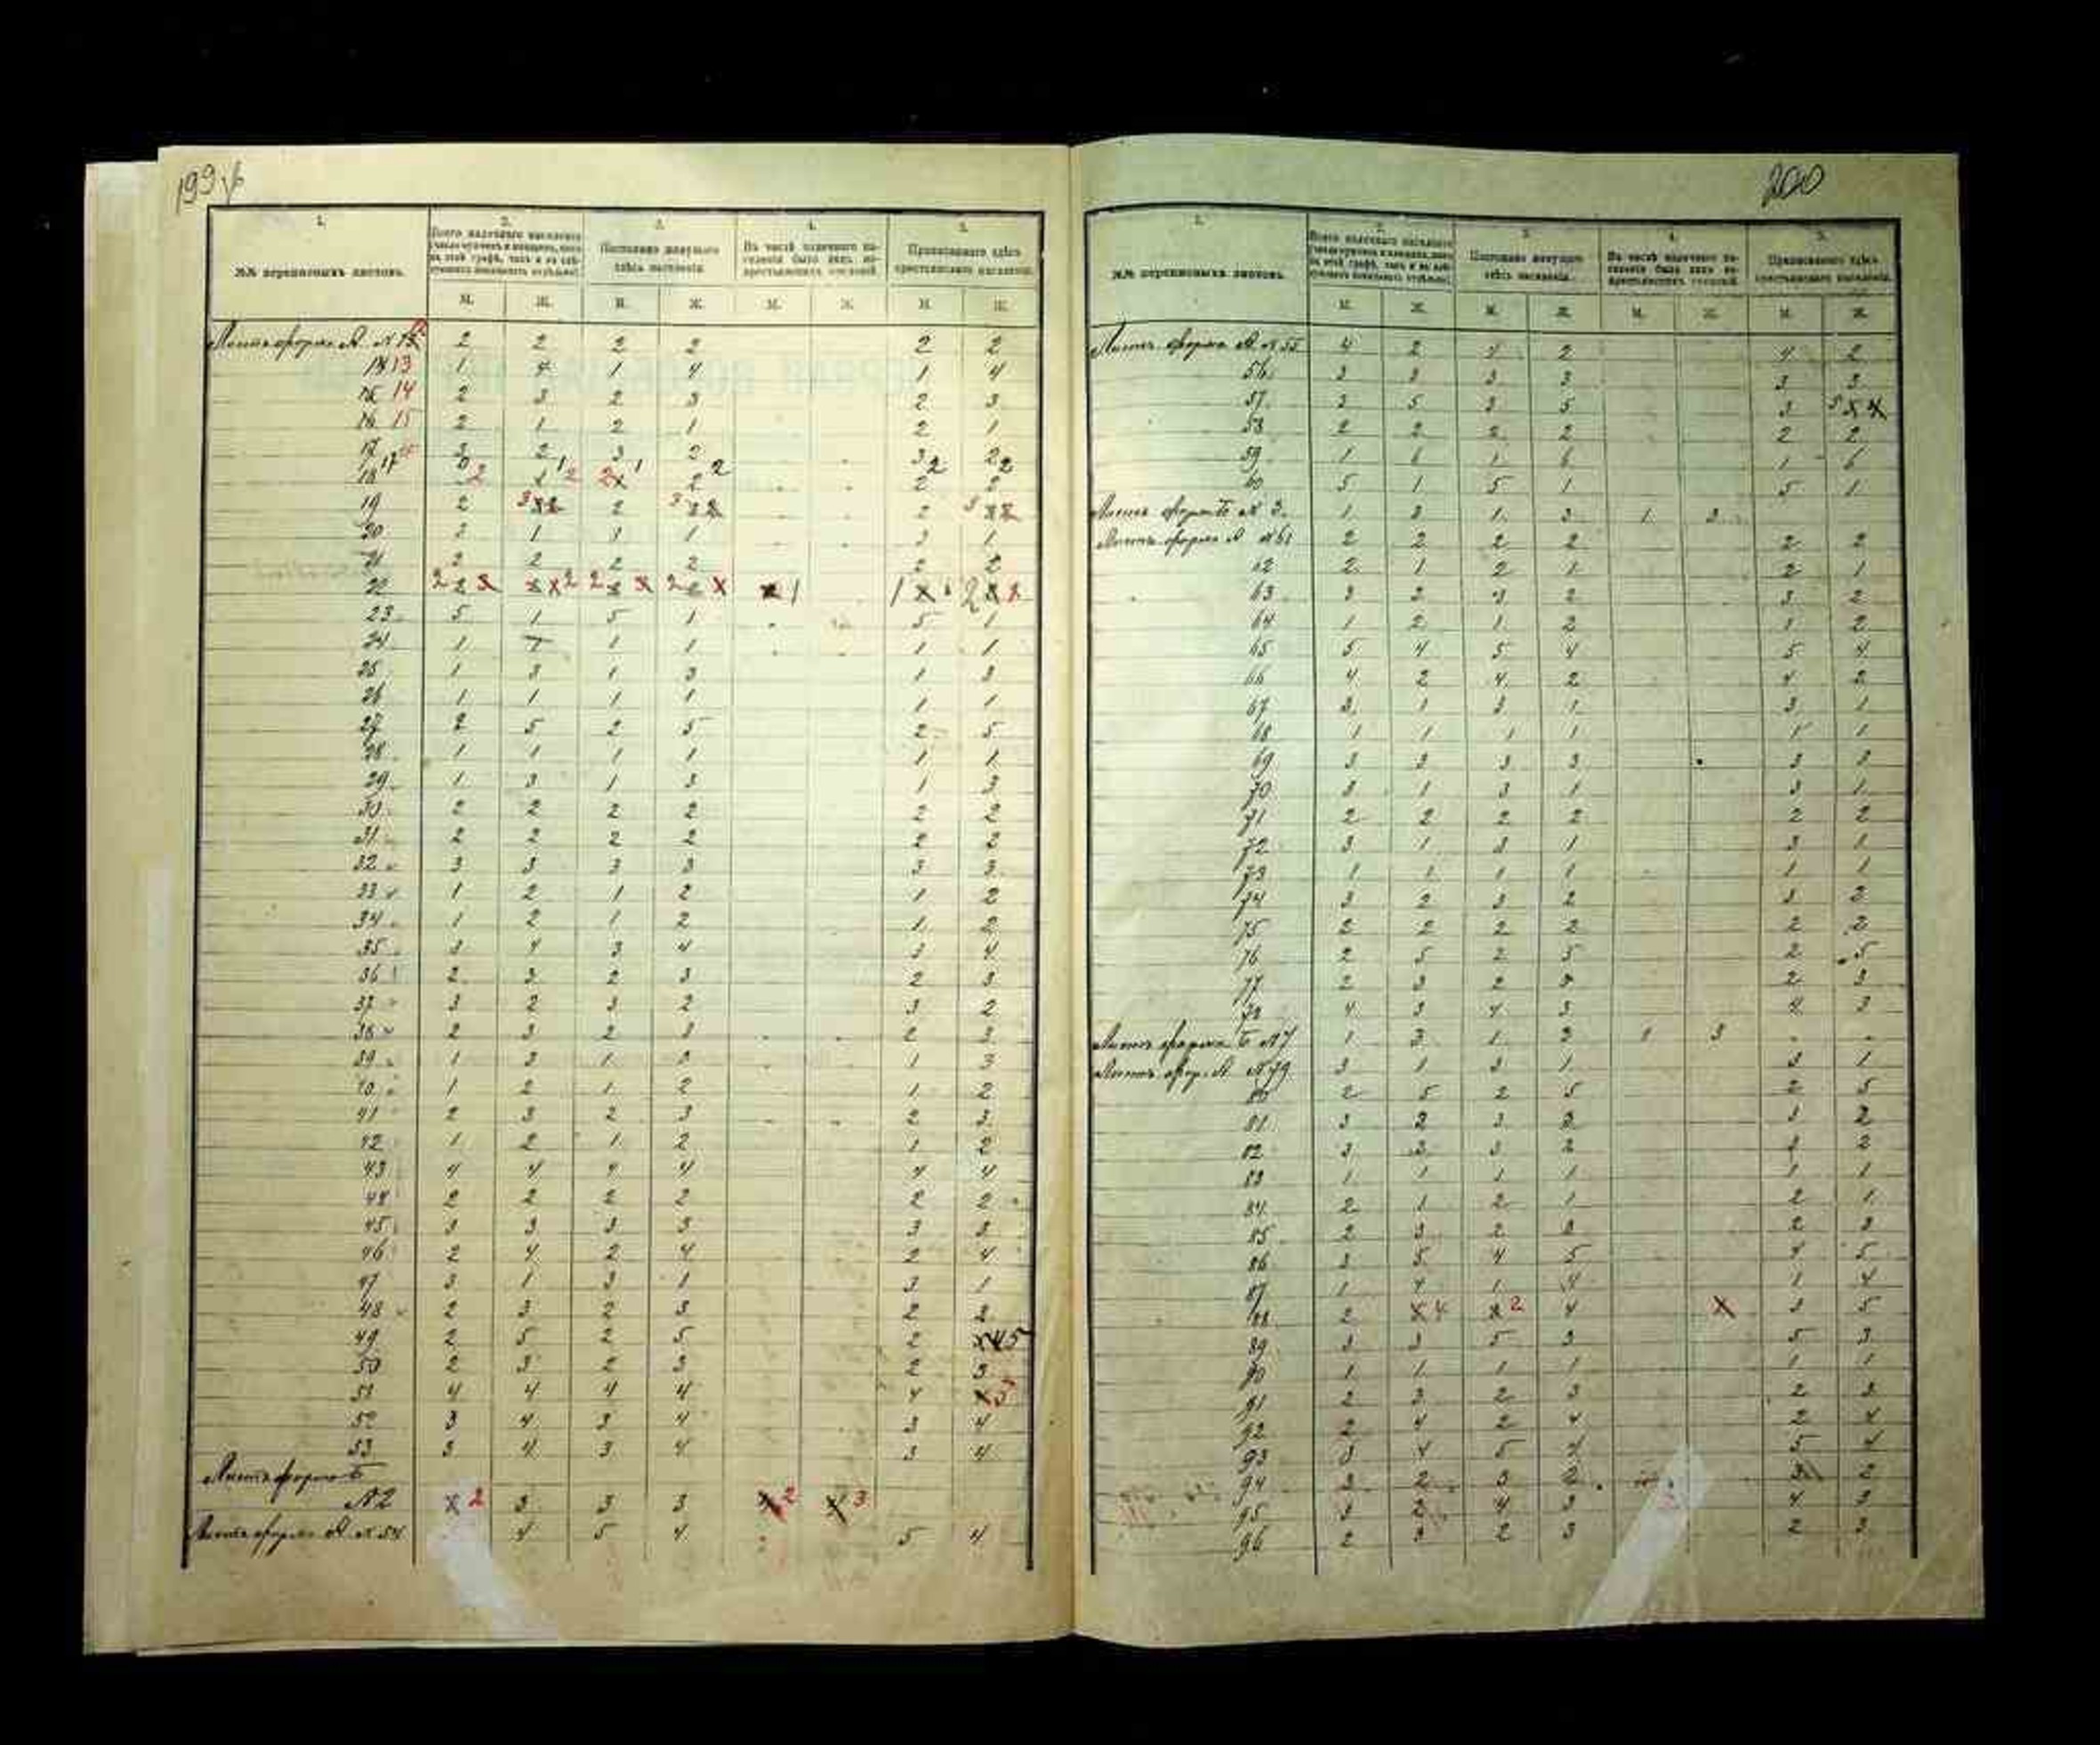 199
1. 2. 3. 4. 5.
№№ переписныхъ листовъ.
Всего наличнаго населенія
Постоянно живущаго здѣсь населенія
Въ числѣ наличнаго населенія было лицъ не крестьянскихъ сословій
Приписаннаго здѣсь крестьянскаго населенія.
М. Ж. М. Ж. М. Ж. М. Ж.
Листъ форма А №
2 2 2 2 2 2
13 1 4 1 4 1 4
14 2 3 2 3 2 3
15 2 1 2 1 2 1
17 3 2 3 2 3 2
18 17
19 2 2 2
20 1 1 1
21 2 2 2 2 2 2
22
23 5 1 5 1 5 1
24 1 1 1 1 1
25 1 3 1 3 1 3
26 1 1 1 1 1 1
27 2 5 2 5 2 5
28 1 1 1 1 1 1
29 1 3 1 3 1 3
30 2 2 2 2 2 2
31 2 2 2 2 2 2
32 3 3 3 3 3 3
33 1 2 1 2 1 2
34 1 2 1 2 1 2
35 3 4 3 4 3 4
36 2 3 2 3 2 3
37 3 2 3 2 3 2
38 2 3 2 3 2 3
39 1 3 1 3 1 3
40 1 2 1 2 1 2
41 2 3 2 3 2 3
42 1 2 1 2 1 2
43 4 4 4 4 4 4
44 2 2 2 2 2 2
45 3 3 3 3 3 3
46 2 4 2 4 2 4
47 3 1 3 1 3 1
48 2 3 2 3 2 3
49 2 5 2 5 2 5
50 2 3 2 3 2 3
51 4 4 4 4 4 3
52 3 4 3 4 3 4
53 3 4 3 4 3 4
Листъ форма Б
№2 2 3 3 3 2 3
Листъ форма А № 54 4 5 4 5 4
200
1. 2. 3. 4. 5.
№№ переписныхъ листовъ.
Всего наличнаго населенія
Постоянно живущаго здѣсь населенія.
Въ числѣ наличнаго населенія было лицъ не крестьянскихъ сословій
Приписаннаго здѣсь крестьянскаго населенія.
М. Ж. М. Ж. М. Ж. М. Ж.
Листъ форма А № 55 4 2 4 2 4 2
56 3 3 3 3 3 3
57 3 5 3 5 3
58 2 2 2 2 2 2
59 1 6 1 6 1 6
60 5 1 5 1 5 1
Листъ форма Б № 3. 1 3 1 3 1 3
Листъ форма А №61 2 2 2 2 2 2
62 2 1 2 1 2 1
63 3 2 3 2 3 2
64 1 2 1 2 1 2
65 5 4 5 4 5 4
66 4 2 4 2 4 2
67 3 1 3 1 3 1
68 1 1 1 1 1 1
69 3 3 3 3 3 3
70 3 1 3 1 3 1
71 2 2 2 2 2 2
72 3 1 3 1 3 1
73 1 1 1 1 1 1
74 3 2 3 2 3 2
75 2 2 2 2 2 2
76 2 5 2 5 2 5
77 2 3 2 3 2 3
78 4 3 4 3 4 3
Листъ форма Б 1 3 1 3 1 3
Листъ фор. А №79 3 1 3 1 3 1
80 2 5 2 5 2 5
81 3 2 3 2 3 2
82 3 3 2 3 2
83 1 1 1 1 1 1
84 2 1 2 1 2 1
85 2 3 2 3 2 3
86 3 5 4 5 4 5
87 1 4 1 4 1 4
88 2 4 2 4 3 5
89 3 3 5 3 5 3
90 1 1 1 1 1 1
91 2 3 2 3 2 3
92 2 4 2 4 2 4
93 3 4 5 4 5 4
94 3 2 3 2 3 2
95 3 2 4 3 4 3
96 2 3 2 3 2 3